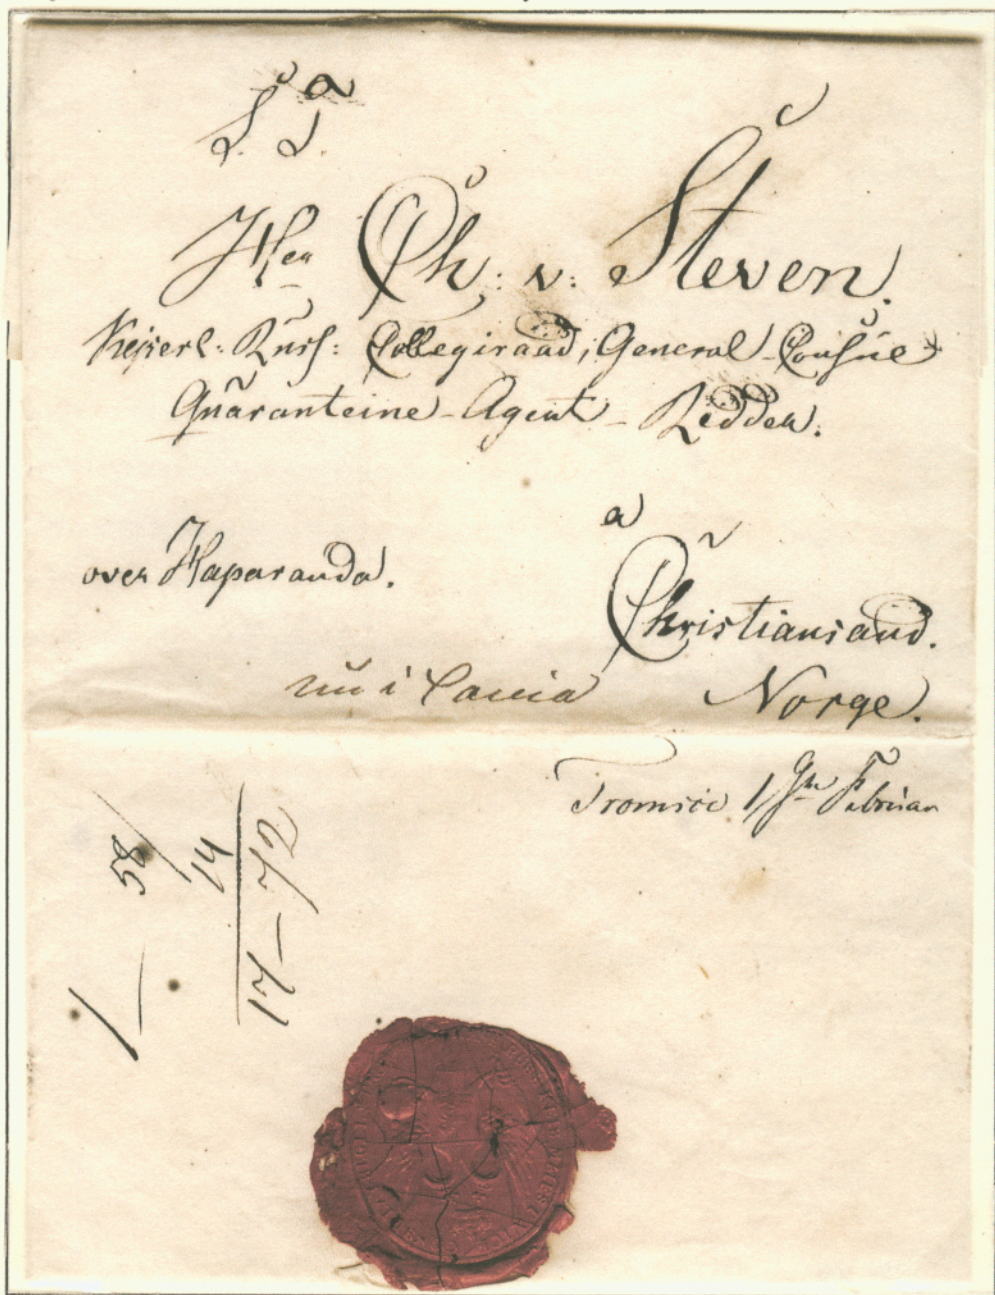 S. T.
Herr Ch: v: Steven.
Keiserl: Russ: Collegiraad, General-Consul
Quaranteine-Agent-Ridder.
a
over Haparanda.
Christiansand.
Norge.
Tromsöe Februar
58
14
17-72